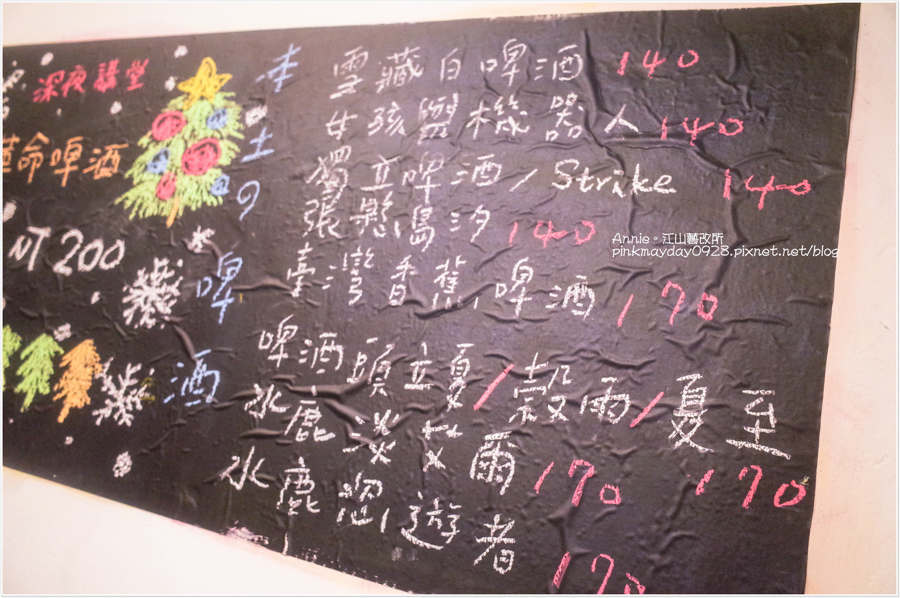 深夜課堂
革命啤酒
NT 200
本土の啤酒
雪藏白啤酒 140
女孩與機器人 140
獨立啤酒/Strike 140
張懸島汐 140
臺灣香蕉啤酒/170
啤酒頭立夏/穀雨/夏至 170
水鹿淡艾爾/170
水鹿漫遊者 170
Annie。江山藝改所
pinkmayday0928.pixnet.net/blog